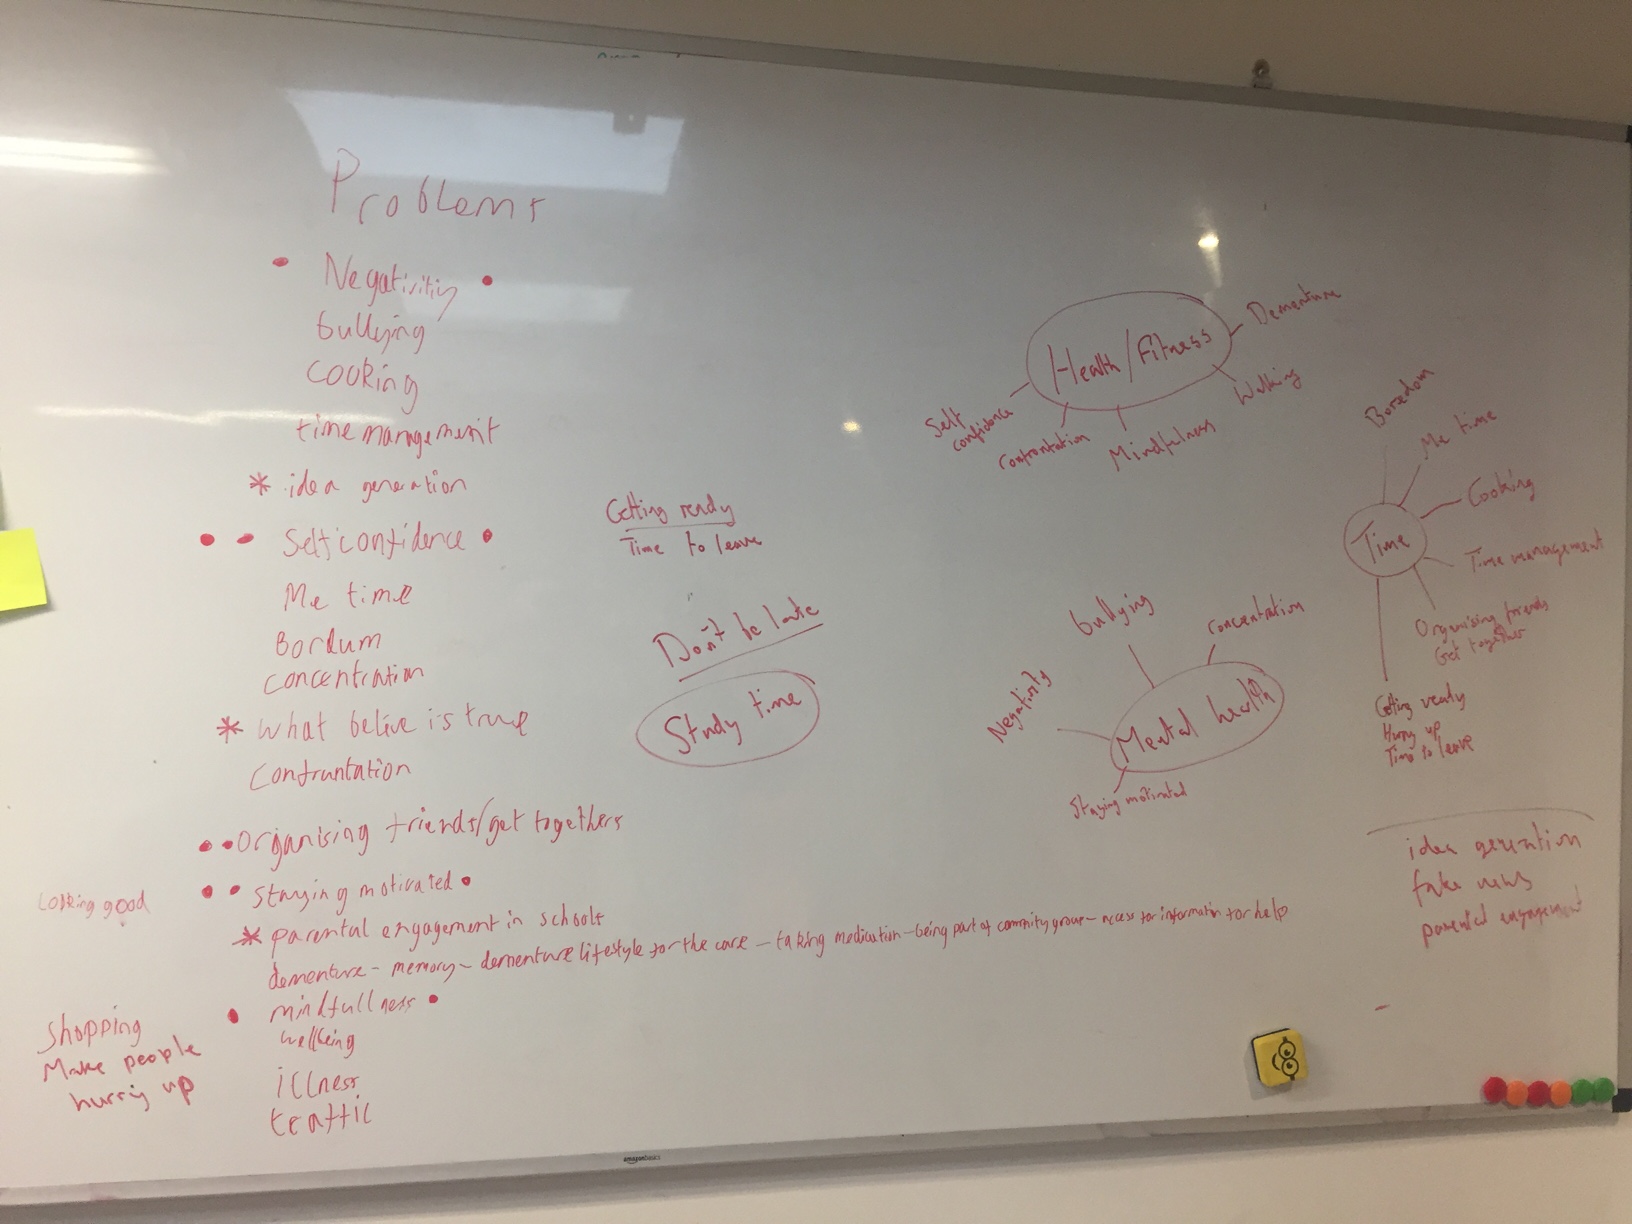 Problems
Negativitiy
bullying
cooking
time management
* idea generation
Self confidence
Me time
Bordum
concentration
* What belive is true
Confruntation
organising friends/get togethers
Staying motivated
* parental engagement in schools
dementure - memory - dementure lifestyle for the care - taking medication - being part of commity group - access for information for help
mindfullness
wellbeing
illness
traffic
Looking good
Shopping
Make people
hurry up
Getting ready
Time to leave
Don't be late
Study time
Health/Fitness
Dementure
Walking
Mindfulness
Confrontation
Self
confidence
Mental health
bullying
concentration
Negativity
Staying motivated
Time
Boredom
Me time
Cooking
Time management
Organising friends
Get together
Getting ready
Hurry up
Time to leave
idea generation
fake news
parental engagement
amazonbasics